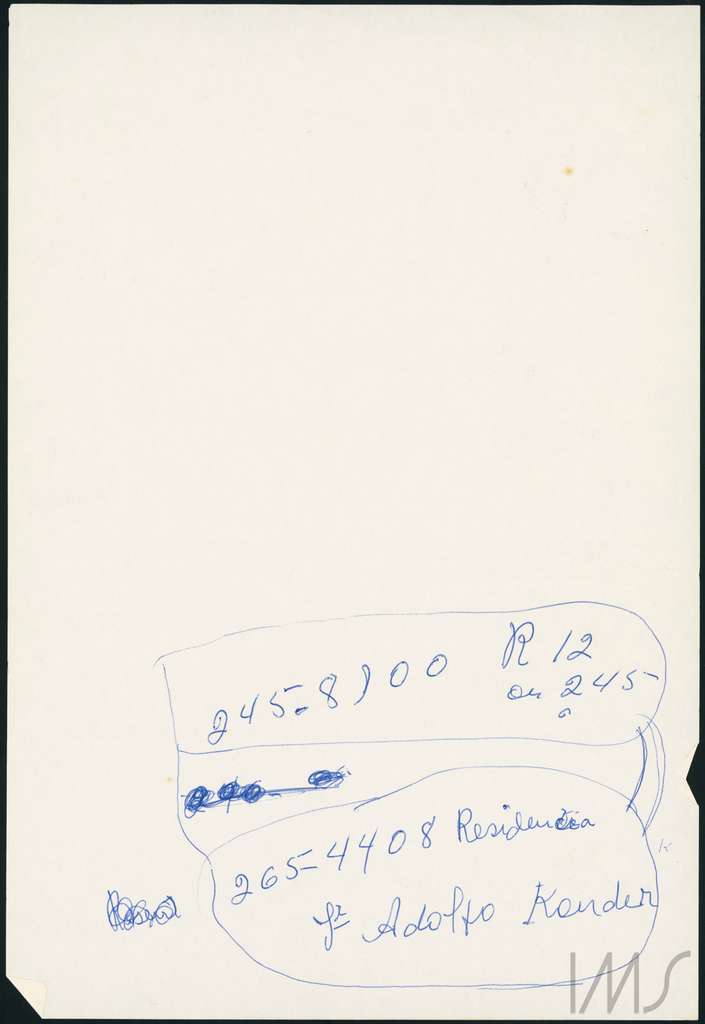 245-8100 R 12
ou 245
265-4408 Residencia
Sr Adolfo Konder
IMS